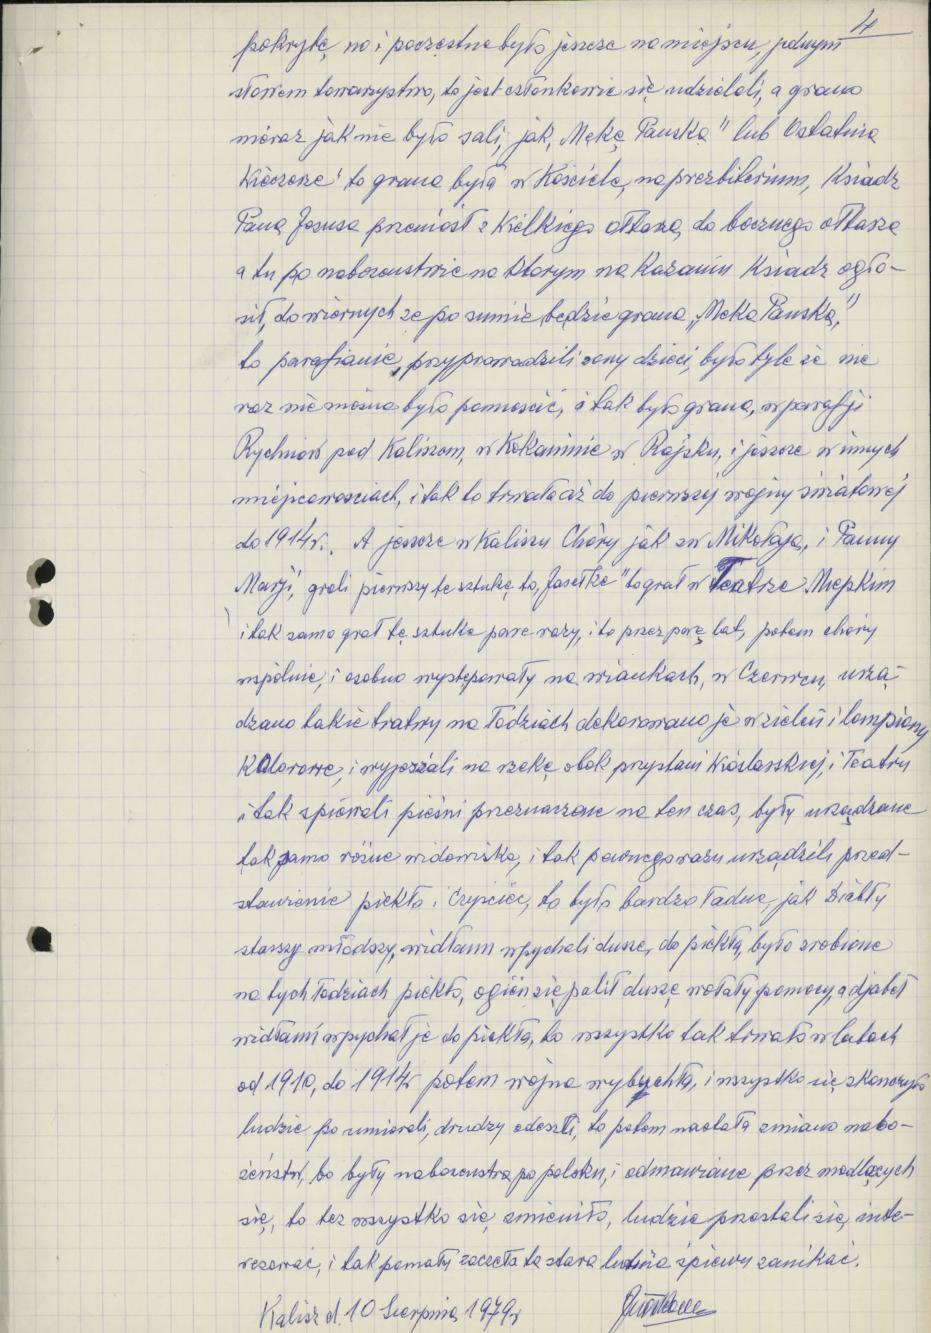 4
pokrybę, no i poczęstne było jeszcze na miejscu, jednym
słowem towarzystwo, to jest członkowie się udzielali, a grano
nieraz jak nie było sali, jak, Mękę Pańską" lub Ostatnią
Wieczerze' to grana była w Kościele, na prezbiterium, Ksiądz
Pana Jezusa przeniósł z Wielkiego ołtarza, do bocznego ołtarza
a tu po nabozeństwie na którym na Kazaniu Ksiądz ogło-
sił, do wiernych ze po sumie, będzie grana „Męka Pańska,"
to parafianie, przyprowadzili zony dzieci, było tyle że nie
raz nie można było pomieścić, i tak było grana, w parafji
Rychnów pod Kaliszem, w Kokaninie w Rajsku, i jeszcze w innych
miejscowosciach, i tak to trwało aż do pierwszej wojny swiatowej
do 1914r. A jeszcze w Kaliszu Chóry jak św Mikołaja, i Panny
Marji, grali pierwszy tę sztukę to, Jasełka" to grał w Teatrze Miejskim
i tak samo grał tę sztukę parę razy, i to przez parę lat, potem chóry
wspólnie, i osobno występowały na wiankach, w Czerwcu, urzą-
dzano takie tratwy na łodziach dekorowano je w zieleń i lampiony
Kolorowe, i wyjezżali na rzekę obok przystani Wioślarskiej, i Teatru
i tak spiewali pieśni przeznaczone na ten czas, były urządzane
tak samo różne widowiska, i tak pewnego razu urządzili przed-
stawienie piekło i Czyściec, to było bardzo ładne, jak Diabły
starszy młodszy, widłami wpychali dusze, do piekła, było zrobione
na tych łodziach piekło, ogień się palił dusze wołały pomocy, a djabeł
widłami wpychał je do piekła, to wszystko tak trwało w latach
od 1910, do 1914r potem wojna wybuchła, i wszystko się skonczyło
ludzie po umierali, drudzy odeszli, to potem nastała zmiana nabo-
żeństw, bo były nabozenstwa po polsku, i odmawiane przez modlących
się, to tez wszystko się zmieniło, ludzie przestali się inte-
resować, i tak pomału zaczęła ta stara śpiewu zanikać.
Kalisz d. 10 Sierpnia 1979r